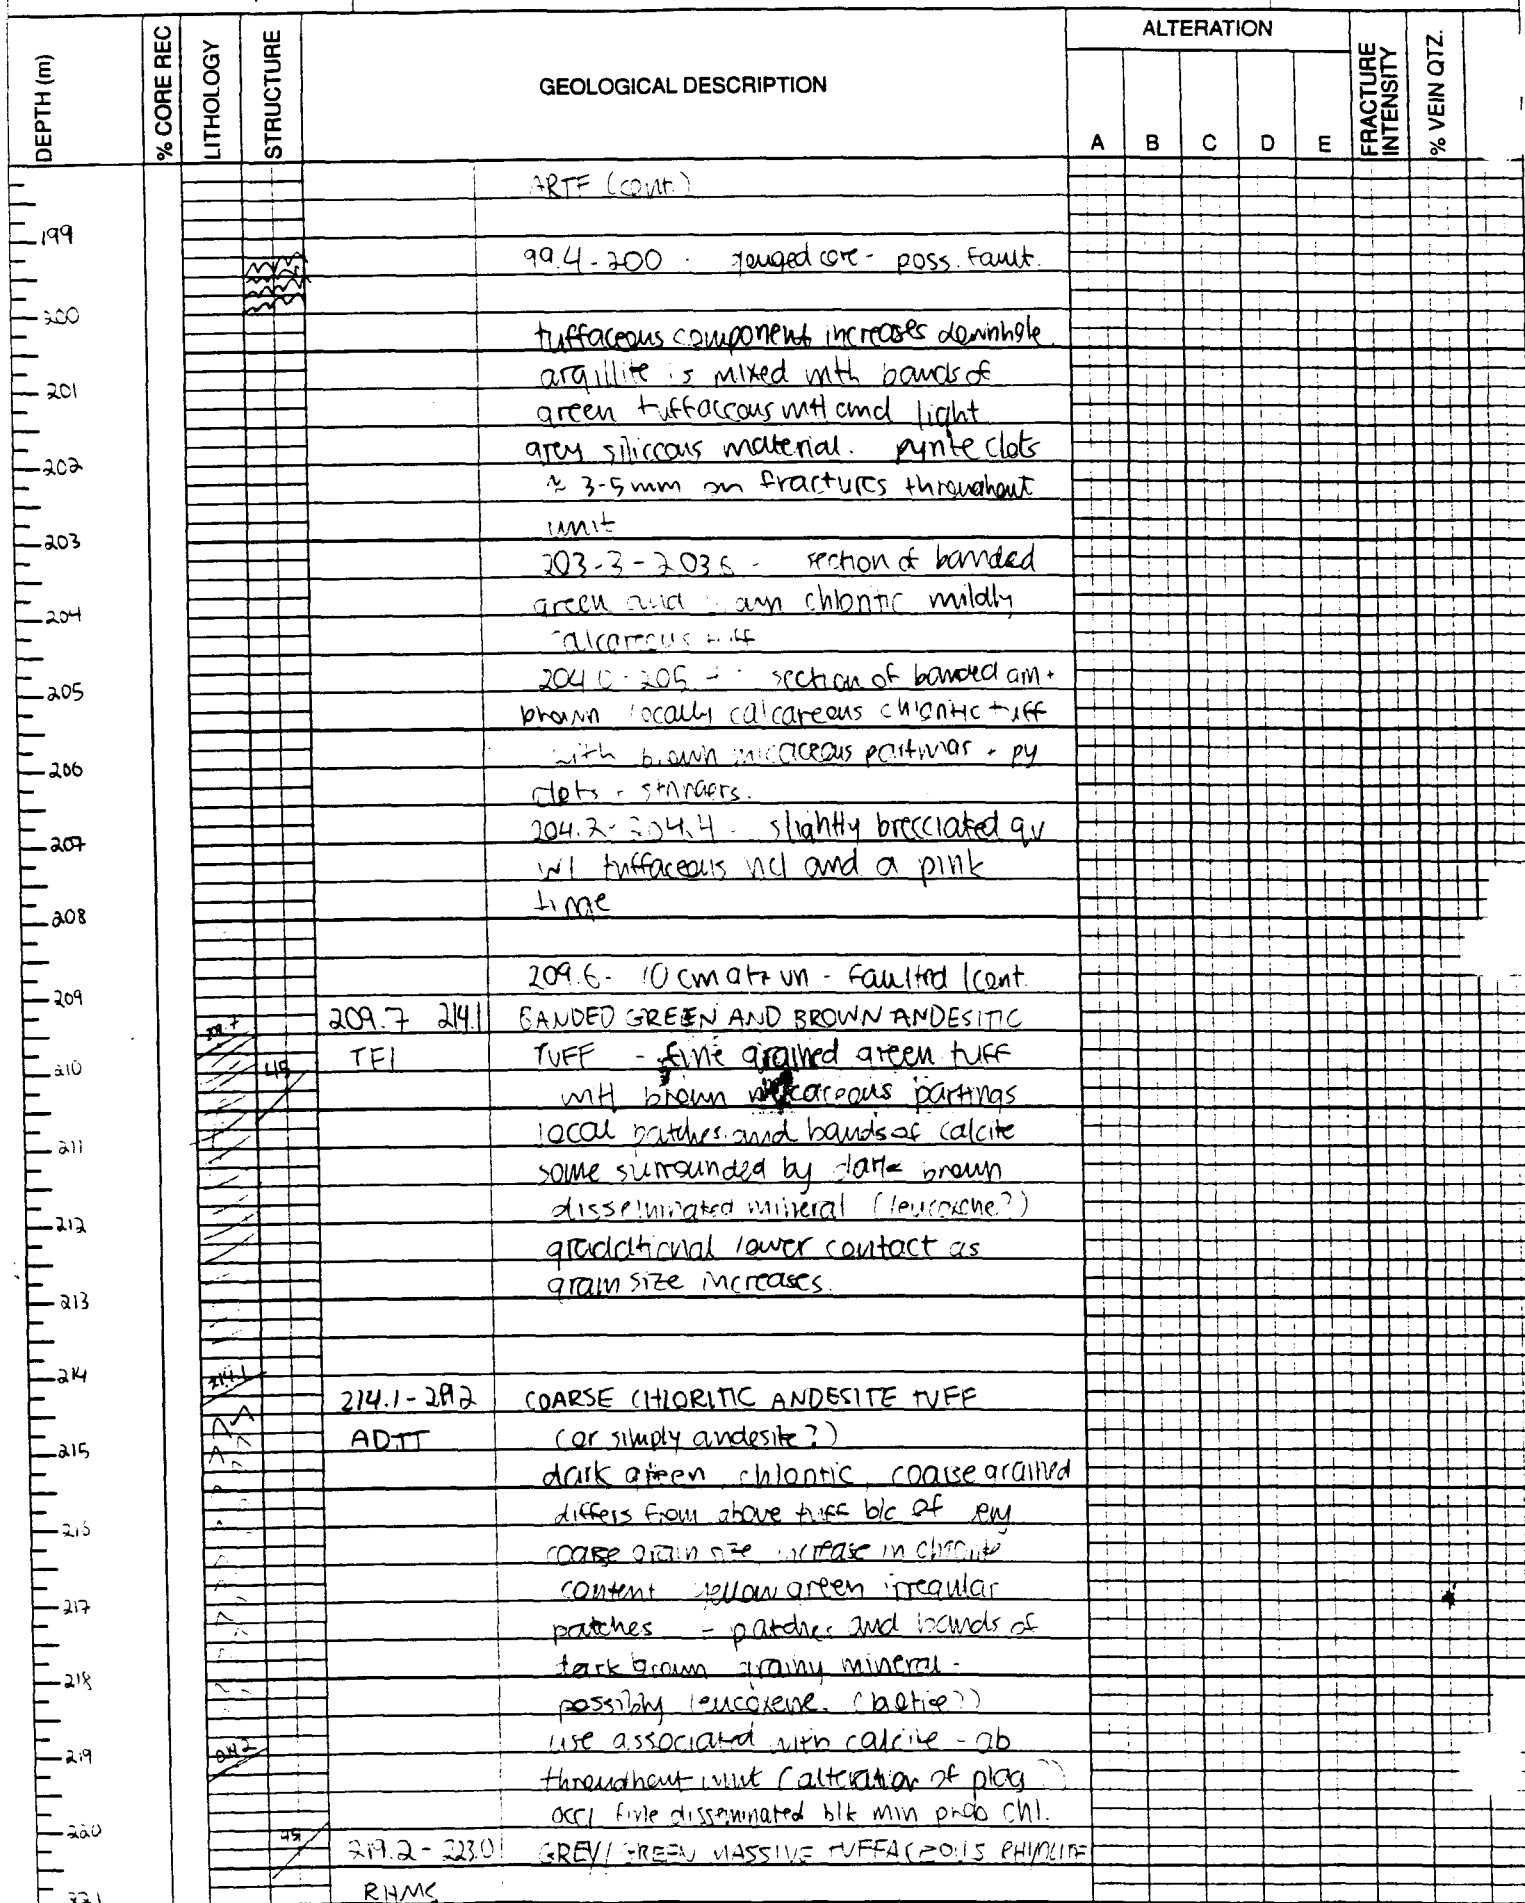 DEPTH (m)
% CORE REC
LITHOLOGY
STRUCTURE
GEOLOGICAL DESCRIPTION
ALTERATION
A B C D E
FRACTURE INTENSITY
% VEIN QTZ.
ARTF (cont.)
199
99.4-200 gouged core - poss. fault.
200
tuffaceous component increases downhole
argillite is mixed with bands of
201
green tuffaceous mtl and light
grey siliceous material. pyrite clots
202
≈ 3-5mm on fractures throughout
unit
203
203-3-203.6 - section of banded
green and chloritic mildly
204
calcareous tuff
204.0-205 - section of banded grn +
205
brown locally calcareous chloritic tuff
with brown micaceous partings - py
206
clots - stringers.
204.2-204.4 - slightly brecciated qv
207
w/ tuffaceous incl and a pink
tinge
208
209.6 - 10 cm qtz vn - faulted cont.
209
209.7
209.7 214.1 BANDED GREEN AND BROWN ANDESITIC
210
45
TF1 TUFF - fine grained green tuff
with brown micaceous partings
211
local patches and bands of calcite
some surrounded by dark brown
disseminated mineral (leucoxene?)
212
gradational lower contact as
grain size increases.
213
214
214.1
214.1-219.2 COARSE CHLORITIC ANDESITE TUFF
215
ADTT (or simply andesite?)
dark green, chloritic, coarse grained
differs from above tuff b/c of
216
coarse grain size, increase in chlorite
content yellow green irregular
217
patches - patches and bands of
dark brown grainy mineral -
218
possibly leucoxene.
associated with calcite - ab
219
219.2
throughout unit (alteration of plag ?)
occl fine disseminated blk min prob chl.
220
45
219.2-223.0 GREY/GREEN MASSIVE TUFFACEOUS RHYOLITE
221
RHMS